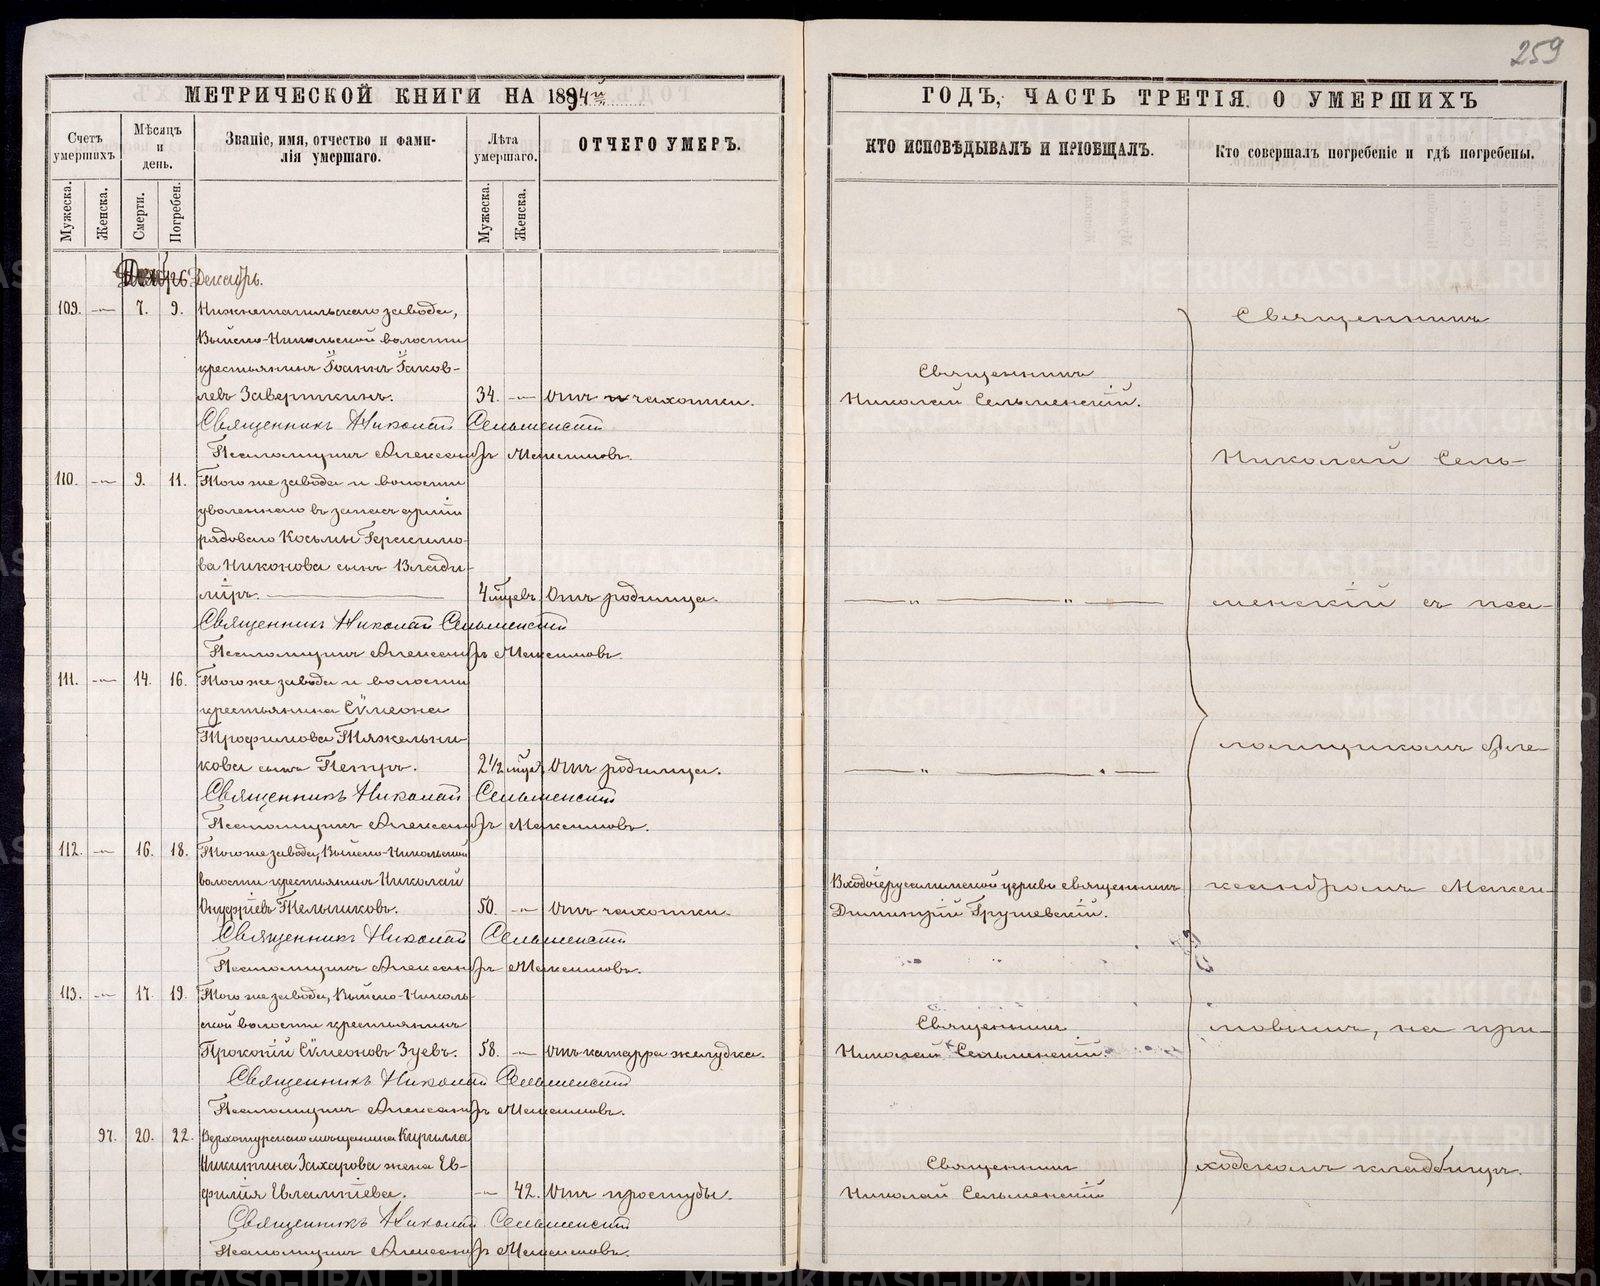 259
МЕТРИЧЕСКОЙ КНИГИ НА 1894й
ГОДЪ, ЧАСТЬ ТРЕТІЯ О УМЕРШИХЪ
Счетъ умершихъ.
Мѣсяцъ и день.
Званіе, имя, отчество и фами-
лія умершаго.
Лѣта умершаго.
ОТЧЕГО УМЕРЪ.
КТО ИСПОВѢДЫВАЛЪ И ПРІОБЩАЛЪ.
Кто совершалъ погребеніе и гдѣ погребены.
Мужеска.
Женска.
Смерти.
Погребен.
Мужеска.
Женска.
Декабрь.
109. — 7. 9. Нижнетагильскаго завода,
Выйско-Никольской волости
крестьянинъ Іоаннъ Іаков-
левъ Заверткинъ. 34. — Отъ чахотки.
Священникъ Николай Сельменскій
Псаломщикъ Александръ Максимовъ.
110. — 9. 11. Того же завода и волости
уволеннаго въ запасъ арміи
рядоваго Косьмы Герасимо-
ва Никонова сынъ Влади-
міръ. 4 мцевъ. Отъ родимца.
Священникъ Николай Сельменскій
Псаломщикъ Александръ Максимовъ.
111. — 14. 16. Того же завода и волости
крестьянина Сѵмеона
Трофимова Тяжельни-
кова сынъ Петръ. 2 1/2 мцев. Отъ родимца.
Священникъ Николай Сельменскій
Псаломщикъ Александръ Максимовъ.
112. — 16. 18. Того же завода, Выйско-Никольской
волости крестьянинъ Николай
Онуфріевъ Тельшковъ. 50. — Отъ чахотки.
Священникъ Николай Сельменскій
Псаломщикъ Александръ Максимовъ.
113. — 17. 19. Того же завода, Выйско-Николь-
ской волости крестьянинъ
Прокопій Сѵмеоновъ Зуевъ. 58. — Отъ катарра желудка.
Священникъ Николай Сельменскій
Псаломщикъ Александръ Максимовъ.
97. 20. 22. Верхотурскаго мѣщанина Кирилла
Никитина Захарова жена Ев-
фимія Евлампіева. — 42. Отъ простуды.
Священникъ Николай Сельменскій
Псаломщикъ Александръ Максимовъ.
Священникъ
Николай Сельменскій.
— „ — „ —
— „ — „ —
Входоіерусалимской церкви священникъ
Димитрій Грушевскій.
Священникъ
Николай Сельменскій.
Священникъ
Николай Сельменскій
Священникъ
Николай Сель-
менскій съ пса-
ломщикомъ Але-
ксандромъ Макси-
мовымъ, на при-
ходскомъ кладбищѣ.
METRIKI.GASO-URAL.RU